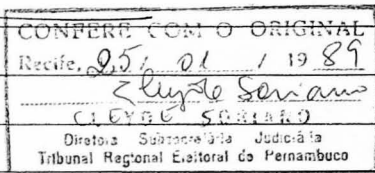 CONFERE COM O ORIGINAL
Recife, 25/ 01 / 19 89
Cleyde Soriano
CLEYDE SORIANO
Diretora Subsecretaria Judiciária
Tribunal Regional Eleitoral de Pernambuco